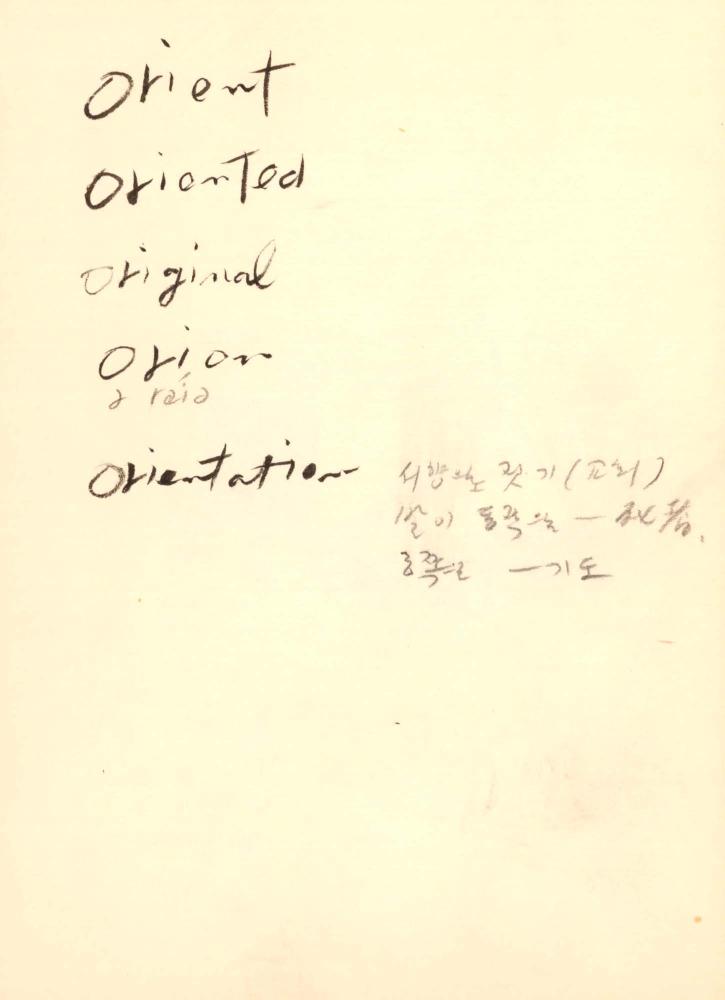 Orient
Oriented
Original
Orion
Orientation 서향으로 짓기 (교회)
발이 동쪽으로 —
동쪽으로 — 기도